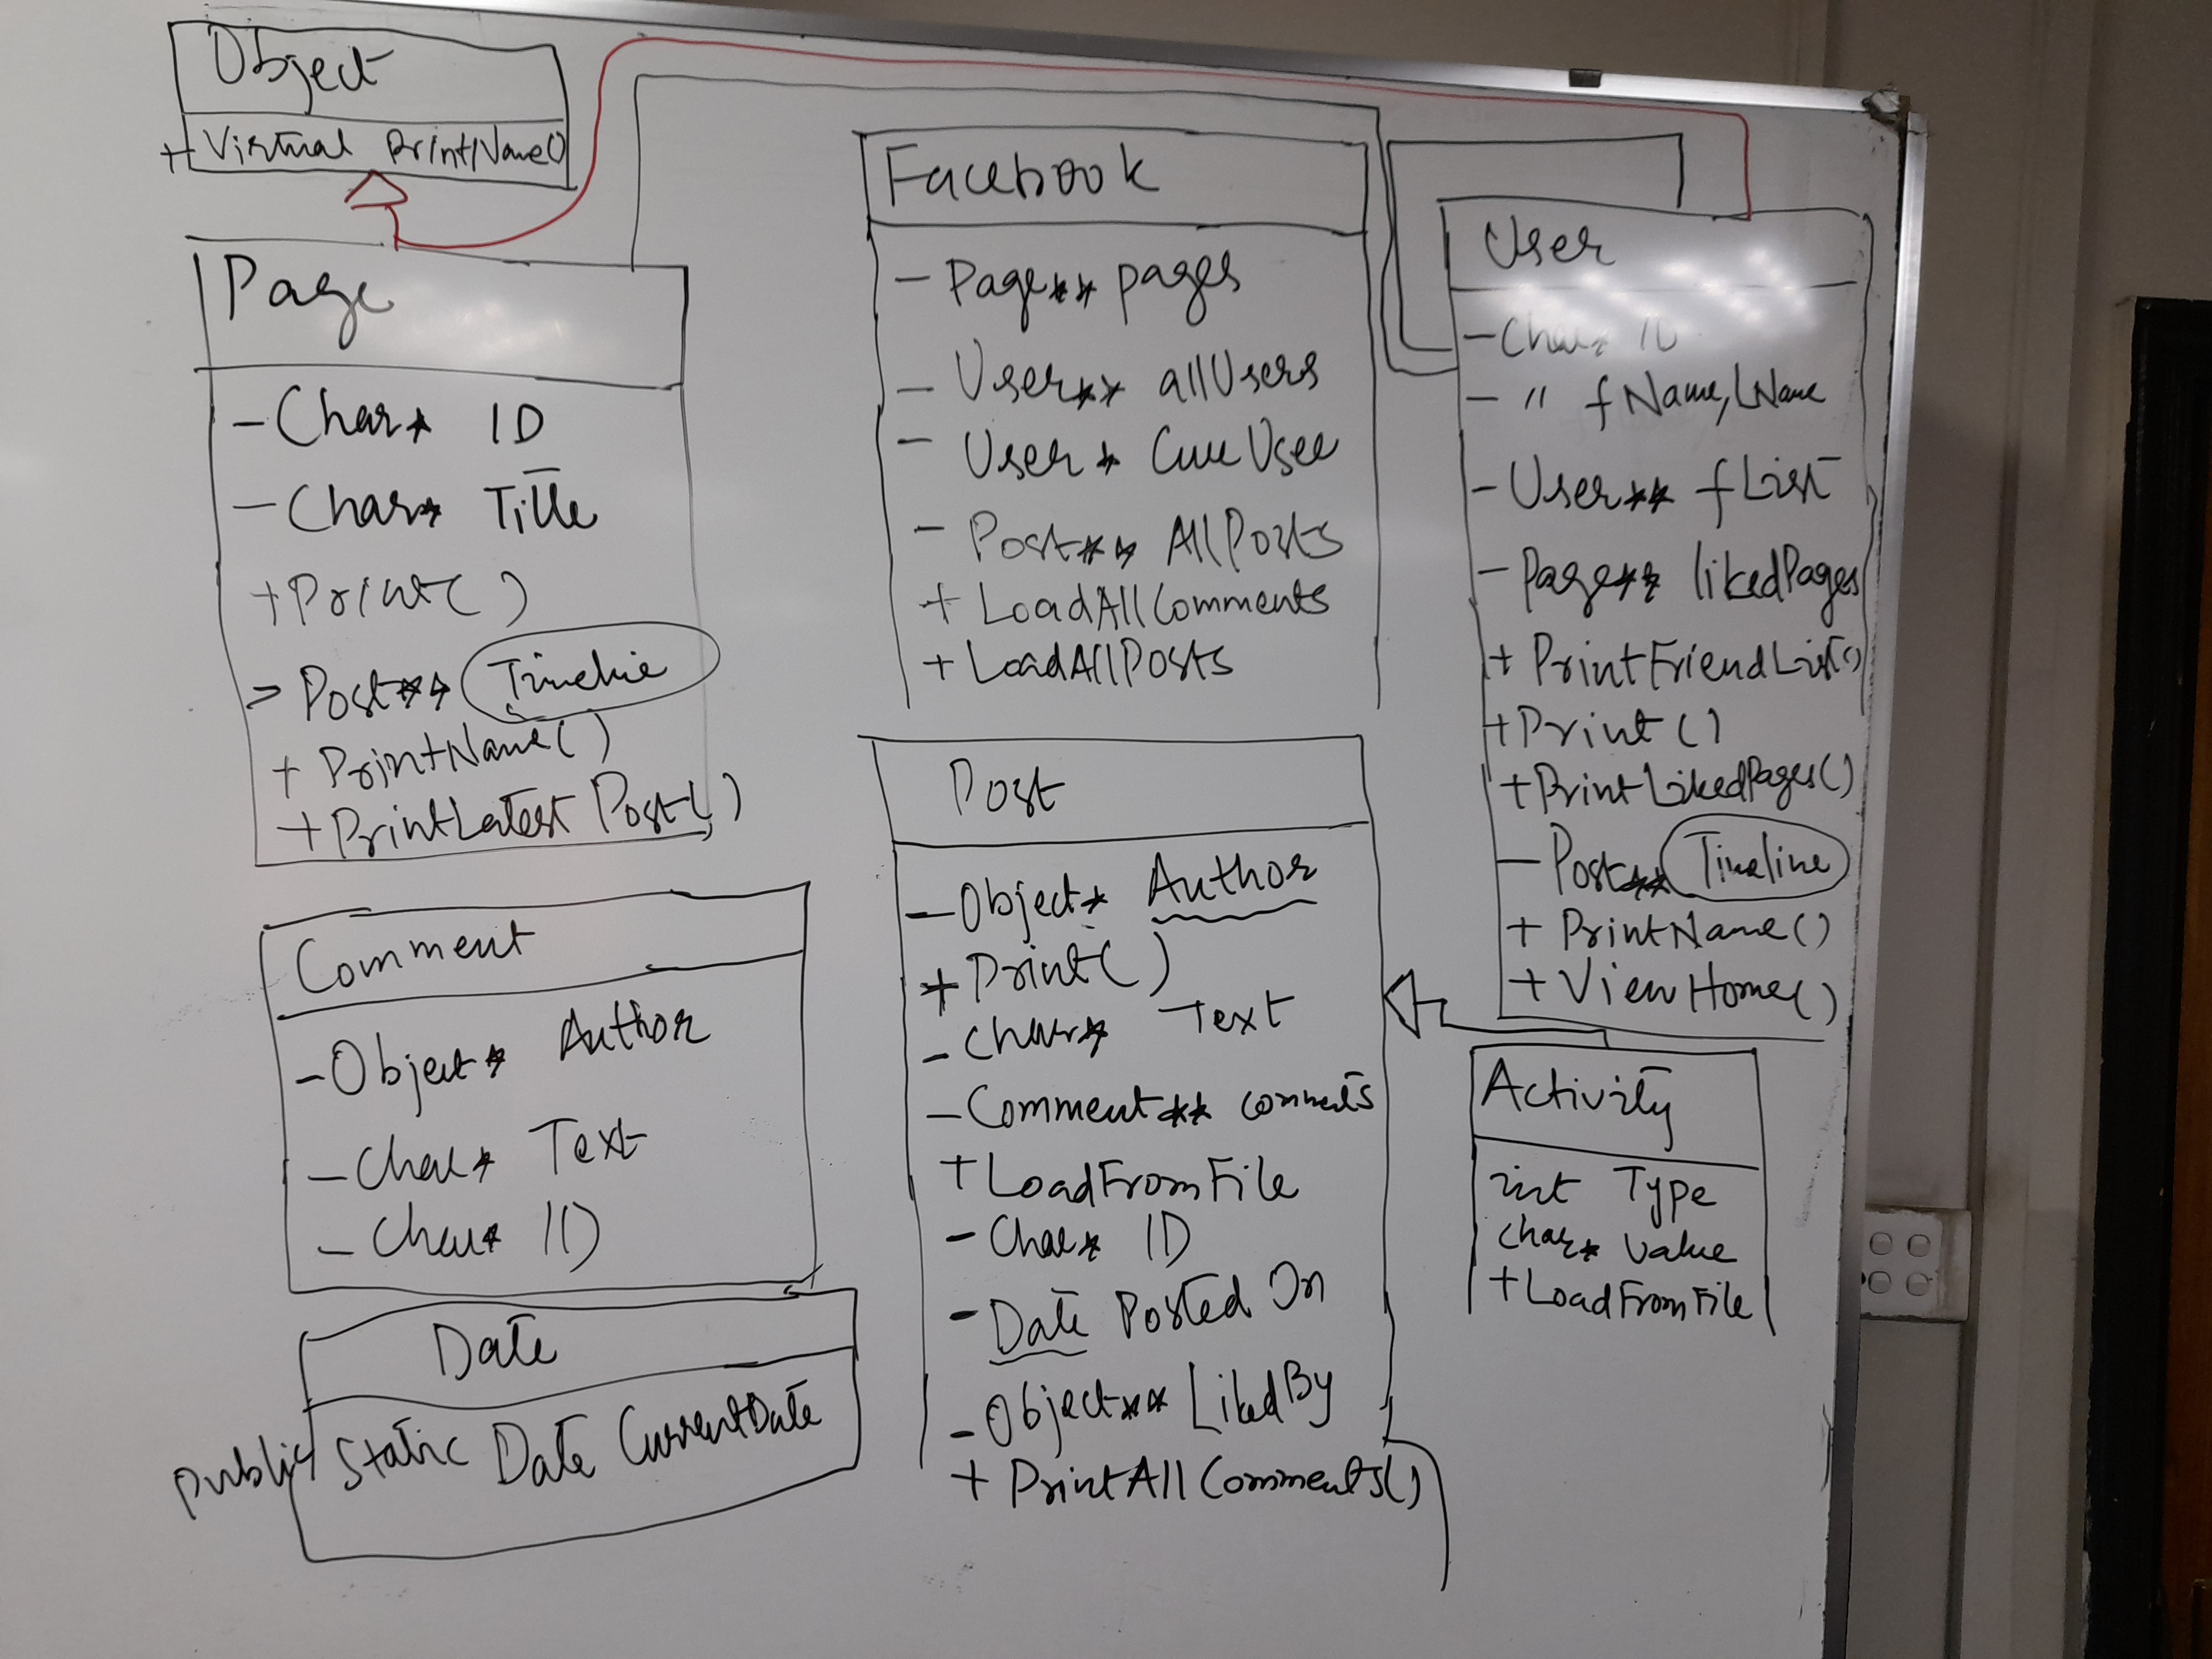 Object
+ Virtual PrintName()
Page
- Char* ID
- Char* Title
+ Print()
> Post** Timeline
+ PrintName()
+ PrintLatestPost()
Comment
- Object* Author
- Char* Text
- Char* ID
Date
public static Date CurrentDate
Facebook
- Page** pages
- User** allUsers
- User* CurrUser
- Post** AllPosts
+ LoadAllComments
+ LoadAllPosts
Post
- Object* Author
+ Print()
- Char* Text
- Comment** comments
+ LoadFromFile
- Char* ID
- Date Posted On
- Object** LikedBy
+ PrintAllComments()
User
- Char* ID
- " fName, LName
- User** fList
- Page** likedPages
+ PrintFriendList()
+ Print()
+ PrintLikedPages()
- Post** Timeline
+ PrintName()
+ ViewHome()
Activity
int Type
char* value
+ LoadFromFile